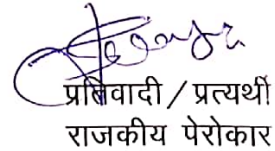 प्रतिवादी/प्रत्यर्थी
राजकीय पेरोकार